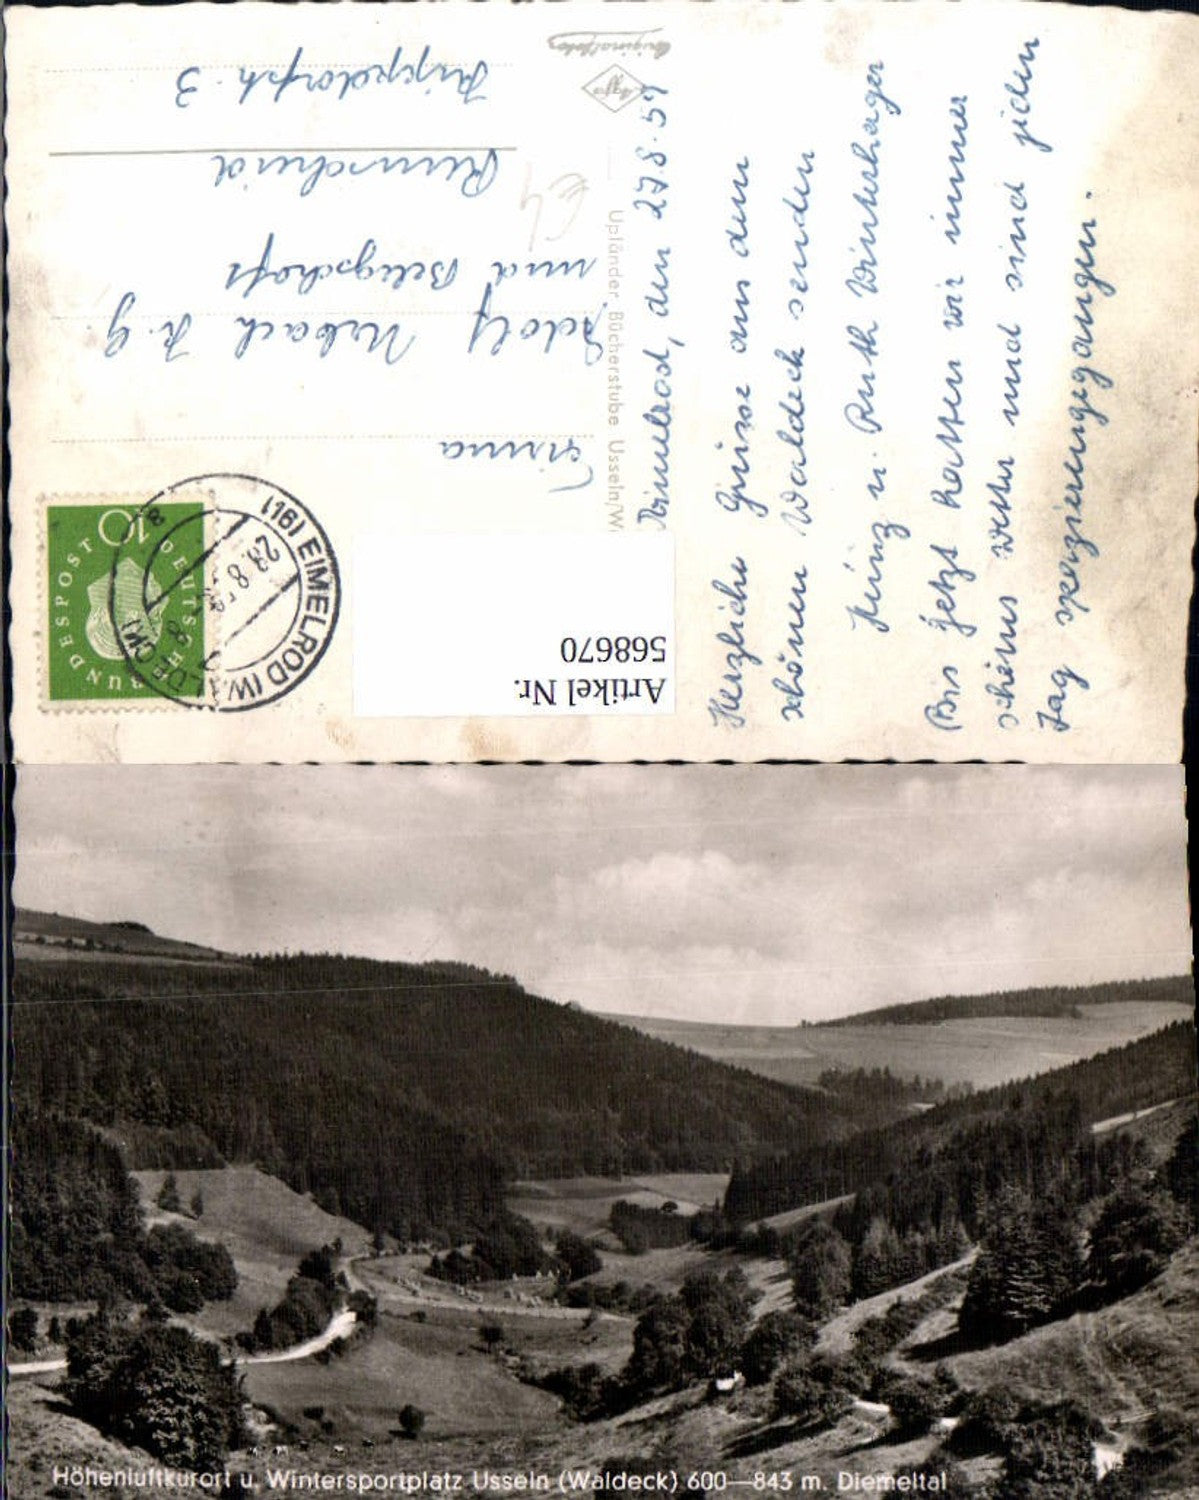 Originalfoto
Agfa
Eimelrod, den 27.8.59
Herzliche Grüsse aus dem
schönen Waldeck senden
Heinz u. Ruth Winterhager
Bis jetzt hatten wir immer
schönes Wetter und sind jeden
Tag spazierengegangen.
Upländer Bücherstube Usseln/W
Firma
Adolf Urbach K.G.
und Belegschaft
Remscheid
3
DEUTSCHE BUNDESPOST
10
(16) EIMELROD (WALDECK)
28.8.59
Artikel Nr.
568670
Höhenluftkurort u. Wintersportplatz Usseln (Waldeck) 600—843 m. Diemeltal